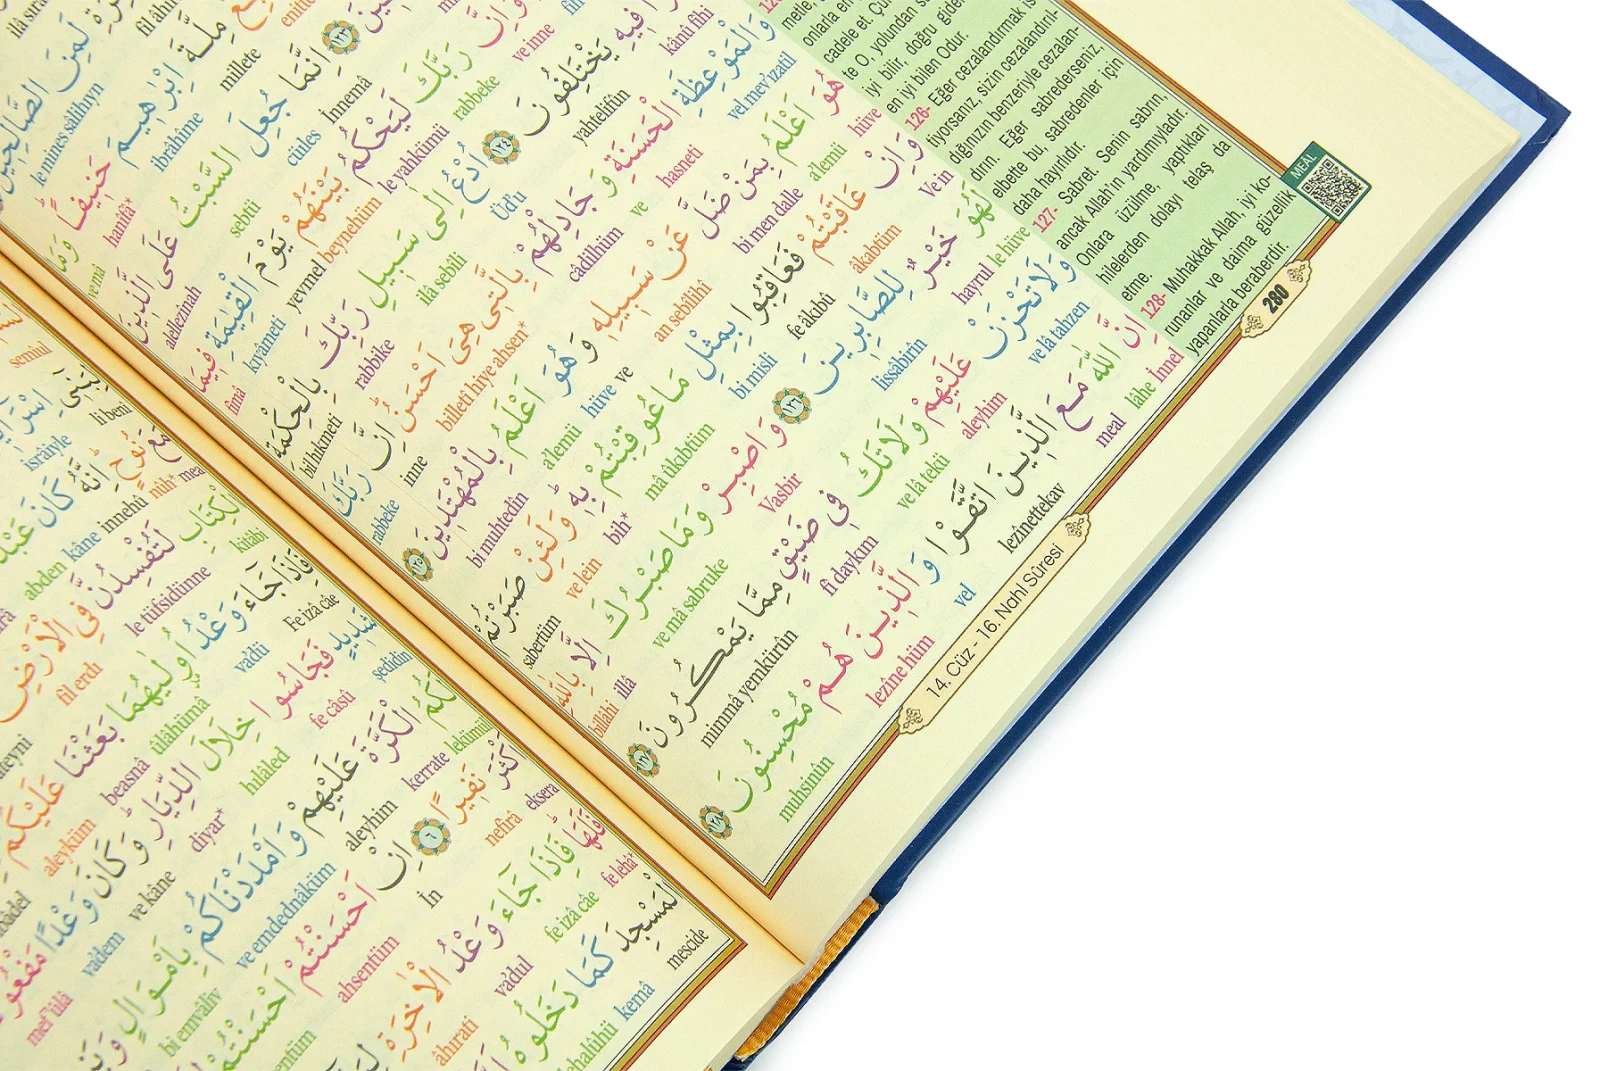 لَمِنَ الصَّالِحِينَ
le mines sâlihıyn
مِلَّةَ اِبْرٰهِيمَ حَنِيفًا وَمَا
millete ibrâhîme hanîfâ* ve mâ
﴿١٢٣﴾ اِنَّمَا جُعِلَ السَّبْتُ عَلَى الَّذِينَ
İnnemâ cüıles sebtü alellezînah
وَاِنَّ رَبَّكَ لَيَحْكُمُ بَيْنَهُمْ يَوْمَ الْقِيٰمَةِ فِيمَا
ve inne rabbeke le yahkümü beynehüm yevmel kıyâmeti fîmâ
فِيهِ يَخْتَلِفُونَ ﴿١٢٤﴾ اُدْعُ اِلٰى سَبِيلِ رَبِّكَ بِالْحِكْمَةِ
kânû fîhi yahtelifûn Üd'u ilâ sebîli rabbike bil hıkmeti
وَالْمَوْعِظَةِ الْحَسَنَةِ وَجَادِلْهُمْ بِالَّتِى هِىَ اَحْسَنُ اِنَّ رَبَّكَ
vel mev'ızatil hasneti ve câdilhüm billetî hiye ahsen* inne rabbeke
هُوَ اَعْلَمُ بِمَنْ ضَلَّ عَنْ سَبِيلِهِ وَهُوَ اَعْلَمُ بِالْمُهْتَدِينَ ﴿١٢٥﴾
hüve a'lemü bi men dalle an sebîlihî ve hüve a'lemü bi muhtedîn
وَاِنْ عَاقَبْتُمْ فَعَاقِبُوا بِمِثْلِ مَا عُوقِبْتُمْ بِهٖ وَلَئِنْ صَبَرْتُمْ
Ve in âkabtüm fe âkıbû bi misli mâ ûkıbtüm bih* ve lein sabertüm
لَهُوَ خَيْرٌ لِلصَّابِرِينَ ﴿١٢٦﴾ وَاصْبِرْ وَمَا صَبْرُكَ اِلَّا بِاللّٰهِ
le hüve hayrul lissâbirîn Vasbir ve mâ sabruke illâ billâhi
وَلَا تَحْزَنْ عَلَيْهِمْ وَلَا تَكُ فِى ضَيْقٍ مِمَّا يَمْكُرُونَ ﴿١٢٧﴾
ve lâ tahzen aleyhim ve lâ tekü fî daykım mimmâ yemkürûn
اِنَّ اللّٰهَ مَعَ الَّذِينَ اتَّقَوْا وَالَّذِينَ هُمْ مُحْسِنُونَ ﴿١٢٨﴾
İnnel lâhe meal lezînettekav vel lezîne hüm muhsinûn
cadele et.
te O, yolundan
iyi bilir, doğru
en iyi bilen Odur.
126- Eğer cezalandırmak is
tiyorsanız, sizin cezalandırıl-
dığınızın benzeriyle cezalan-
dırın. Eğer sabrederseniz,
elbette bu, sabredenler için
daha hayırlıdır.
127- Sabret. Senin sabrın,
ancak Allah'ın yardımıyladır.
Onlara üzülme, yaptıkları
hilelerden dolayı telaş da
etme.
128- Muhakkak Allah, iyi ko-
runanlar ve daima güzellik
yapanlarla beraberdir.
MEÂL
280
14. Cüz - 16. Nahl Sûresi
li benî isrâiyle
مَعَ نُوحٍ اِنَّهُ كَانَ
mea nûh* innehû kâne abden
الْكِتَابِ لَتُفْسِدُنَّ فِى الْاَرْضِ
kitâbi le tüfsidünne fil erdı
فَاِذَا جَاءَ وَعْدُ اُولٰيهُمَا بَعَثْنَا عَلَيْكُمْ
Fe izâ câe va'dü ûlâhümâ beasnâ aleyküm
شَدِيدٍ فَجَاسُوا خِلَالَ الدِّيَارِ وَكَانَ وَعْدًا
şedîdin fe câsû hılâled diyar* ve kâne va'dem mef'ûlâ
لَكُمُ الْكَرَّةَ عَلَيْهِمْ وَاَمْدَدْنَاكُمْ بِاَمْوَالٍ
lekümül kerrate aleyhim ve emdednâküm bi emvâliv
اَكْثَرَ نَفِيرًا ﴿٦﴾ اِنْ اَحْسَنْتُمْ اَحْسَنْتُمْ
eksera nefîrâ İn ahsentüm
فَلَهَا فَاِذَا جَاءَ وَعْدُ الْاٰخِرَةِ
fe lehâ* fe izâ câe va'dul âhırati
الْمَسْجِدَ كَمَا دَخَلُوهُ
mescide kemâ